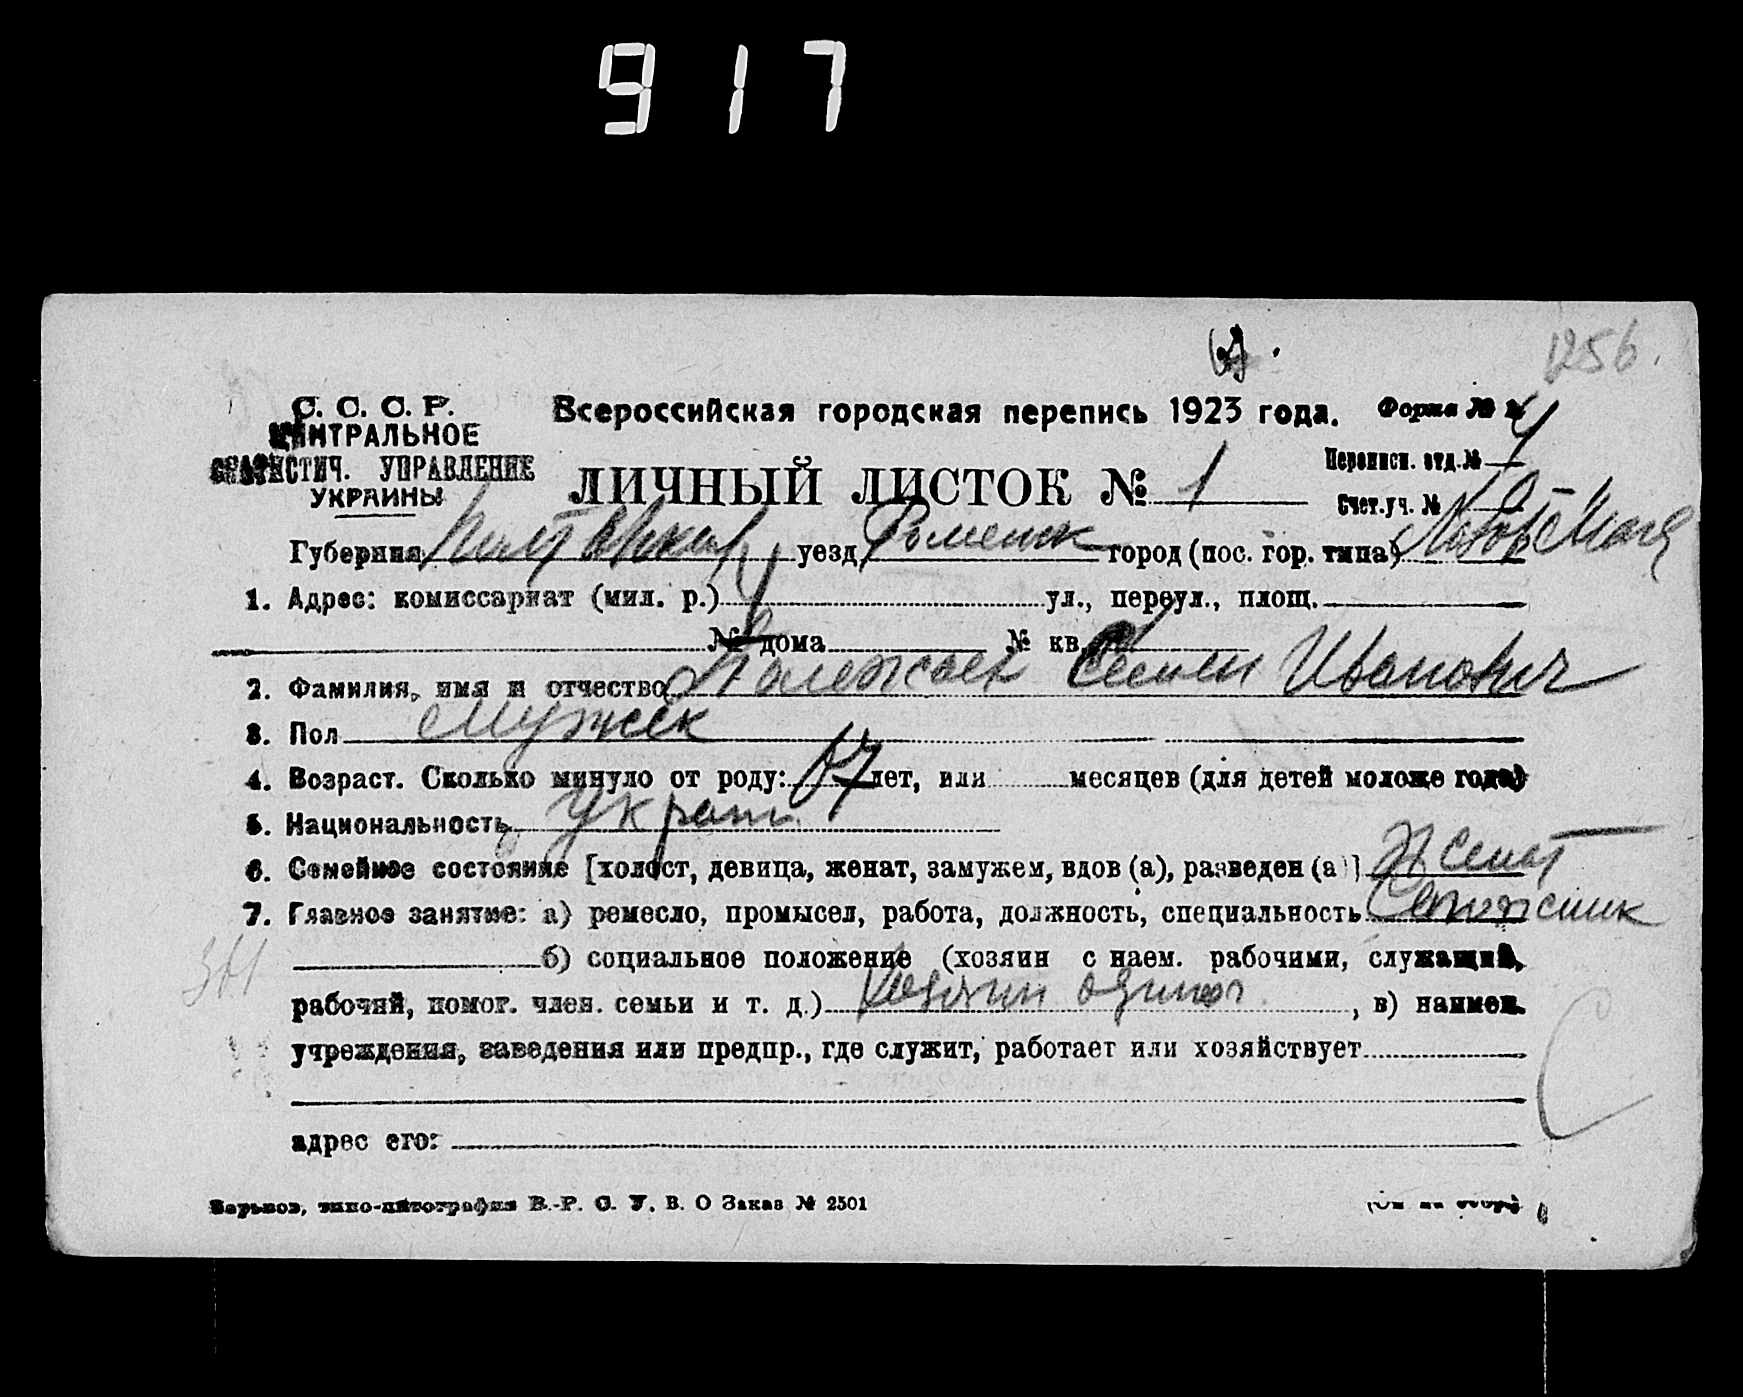 917
1256.
С. С. С. Р.
ЦЕНТРАЛЬНОЕ
СТАТИСТИЧ. УПРАВЛЕНИЕ
УКРАИНЫ
Всероссийская городская перепись 1923 года. Форма №
ЛИЧНЫЙ ЛИСТОК № 1
Переписн. отд. №
Счет. уч. №
Губерния уезд Роменск город (пос. гор. типа)
1. Адрес: комиссариат (мил. р.) ул., переул., площ.
№ дома № кв.
2. Фамилия, имя и отчество Семен Иванович
3. Пол Мужск
4. Возраст. Сколько минуло от роду: лет, или месяцев (для детей моложе года)
5. Национальность Украин.
6. Семейное состояние [холост, девица, женат, замужем, вдов (а), разведен (а)] Женат
7. Главное занятие: а) ремесло, промысел, работа, должность, специальность Сапожник
б) социальное положение (хозяин с наем. рабочими, служащий,
рабочий, помог. член. семьи и т. д.) Хозяин один , в) наимен.
учреждения, заведения или предпр., где служит, работает или хозяйствует
адрес его:
Харьков, типо-литография В.-Р. С. У. В. О Заказ № 2501